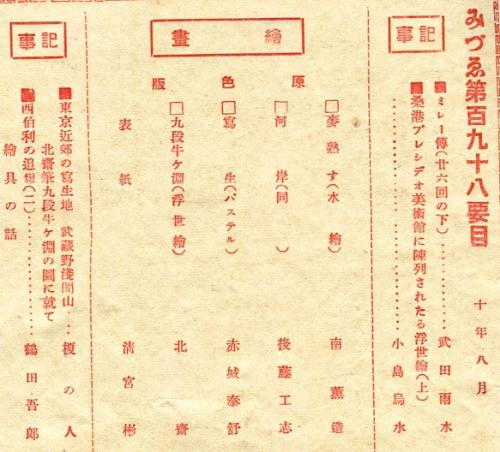 みづゑ第百九十八要目
十年八月
記事
ミレー傳(廿六回の下)‥‥武田雨水
桑港プレシデオ美術館に陳列されたる浮世繪(上)
‥‥‥‥‥‥‥‥小島烏水
繪畫
原色版
麥熟す(水繪) 南薰造
河岸(同) 後藤工志
寫生(パステル) 赤城泰舒
九段牛ケ淵(浮世繪) 北齋
表紙 清宮彬
記事
東京近郊の寫生地 武蔵野淺間山‥‥榎の人
北齋筆九段牛ケ淵の圖に就て
西伯利の追想(二)‥‥‥‥鶴田吾郎
繪具の話